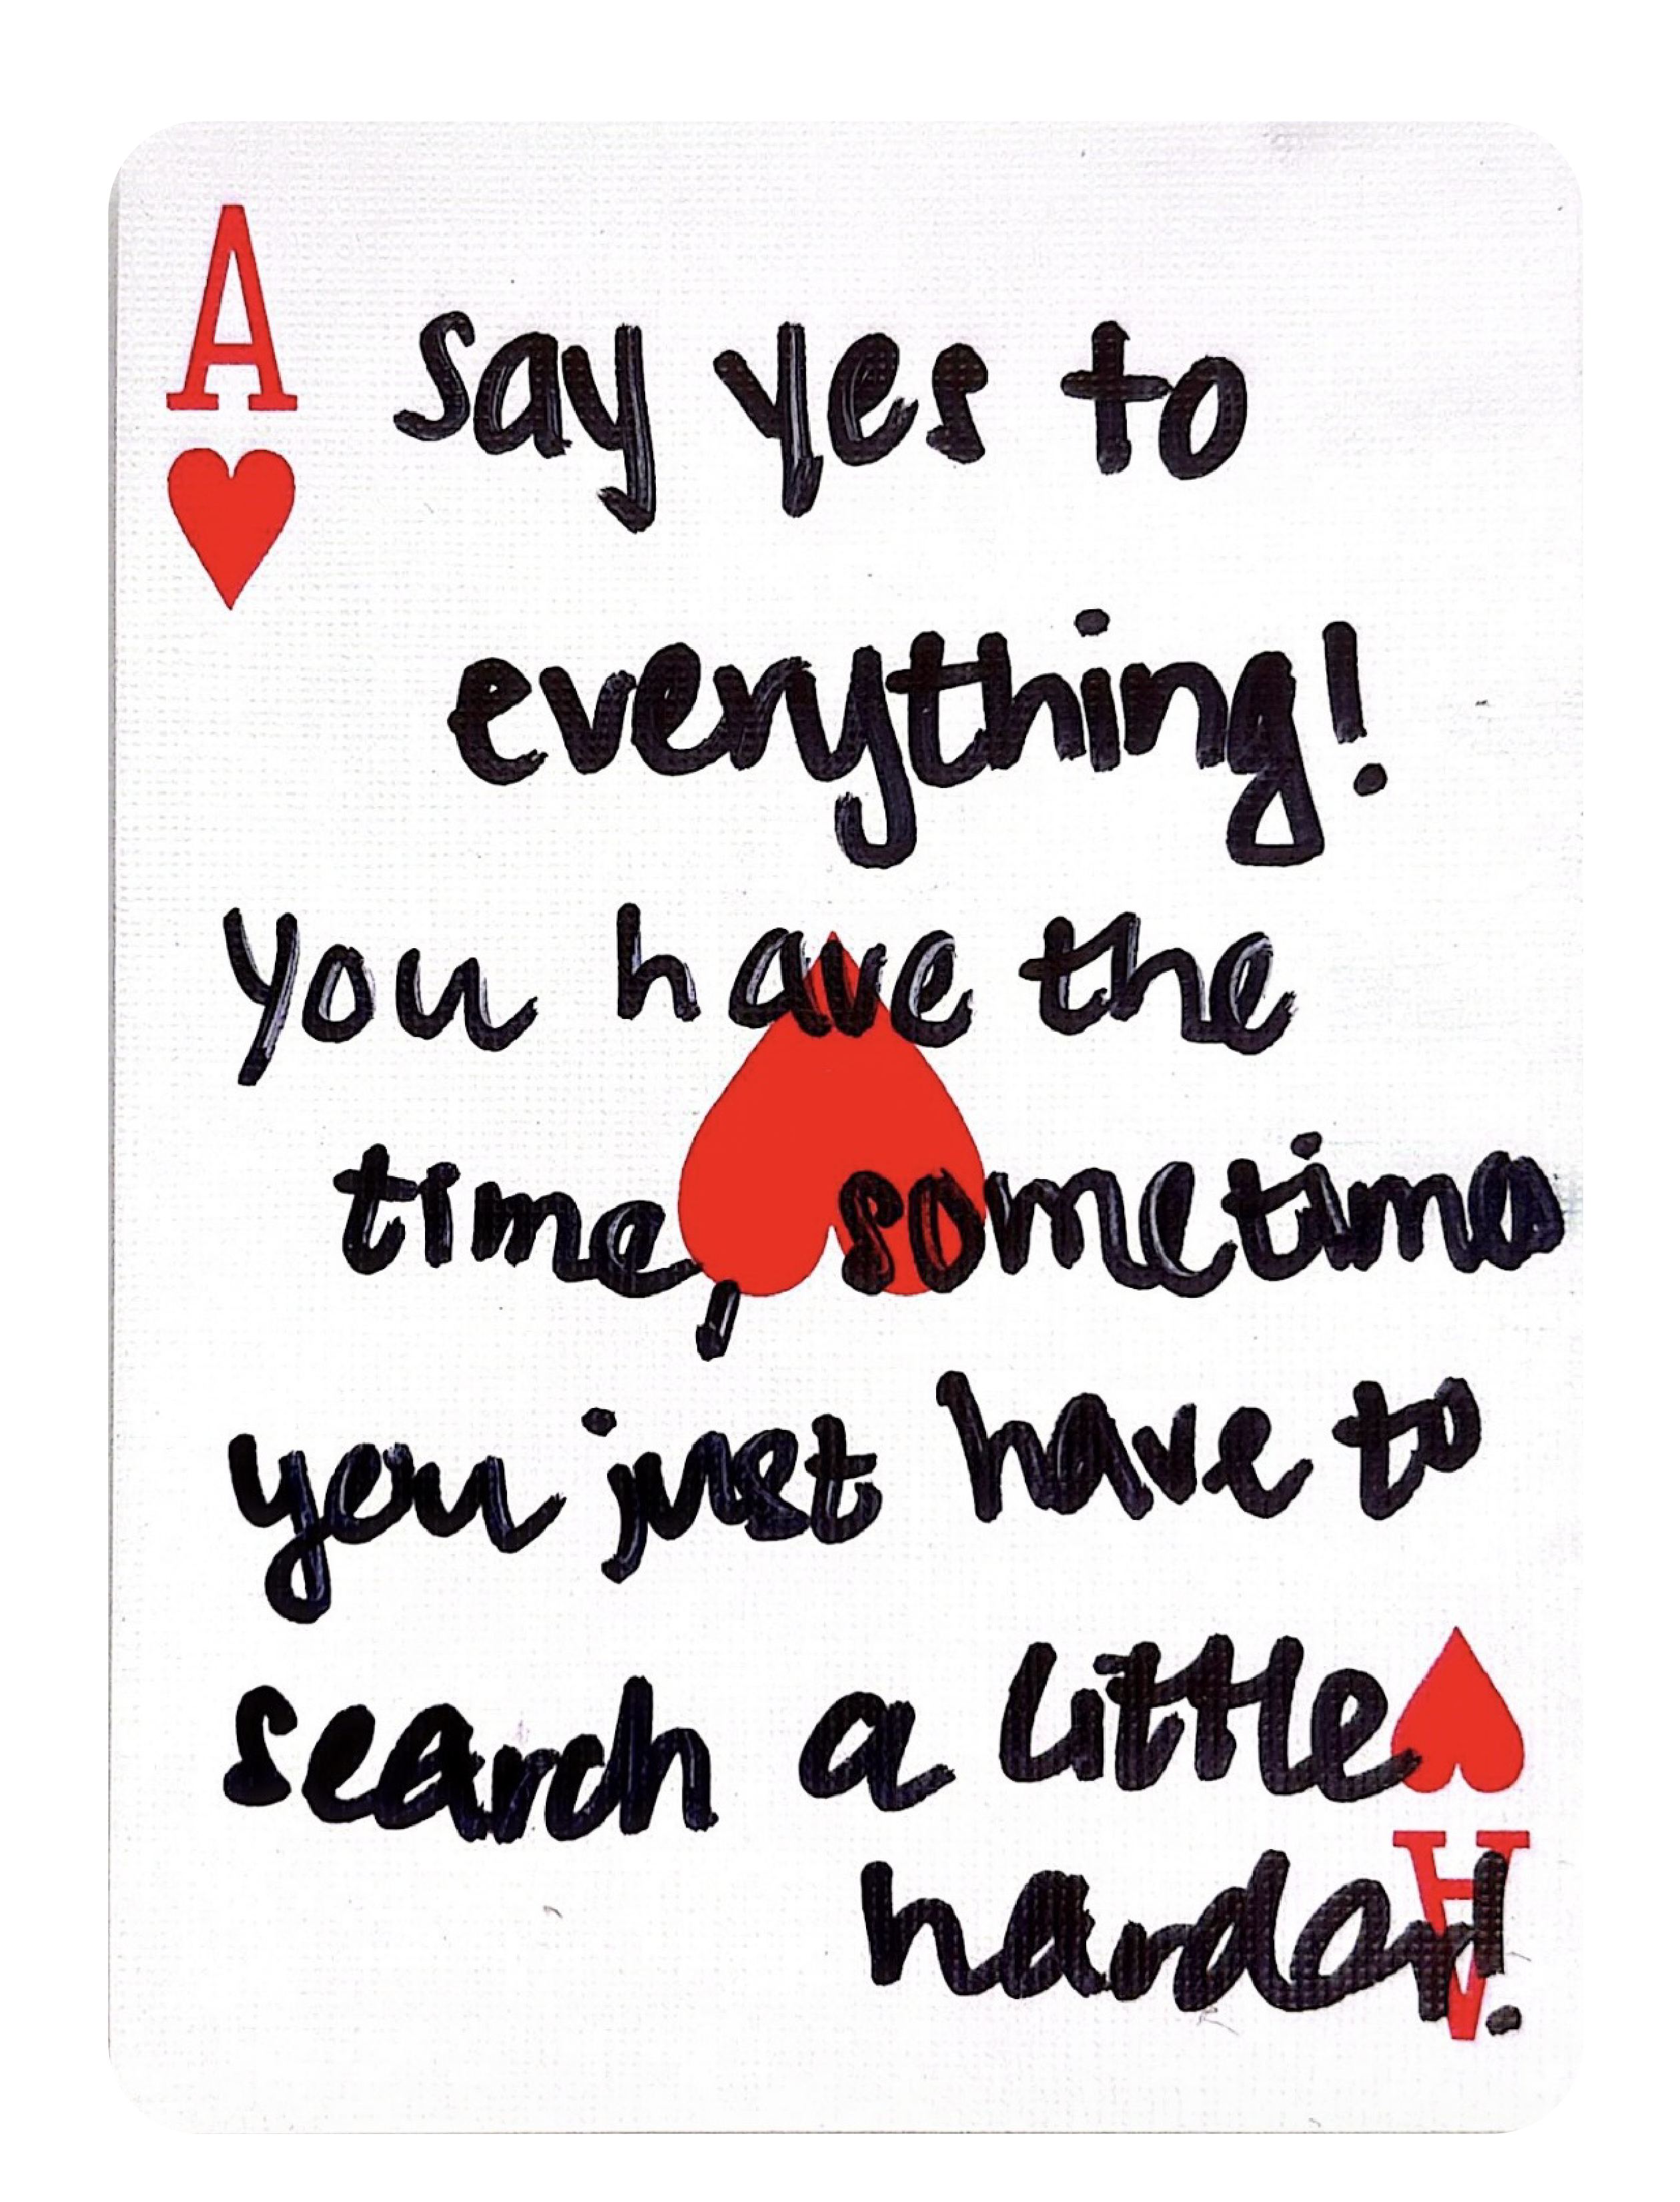 A
say yes to
everything!
you have the
time, sometimes
you just have to
search a little
harder!
A